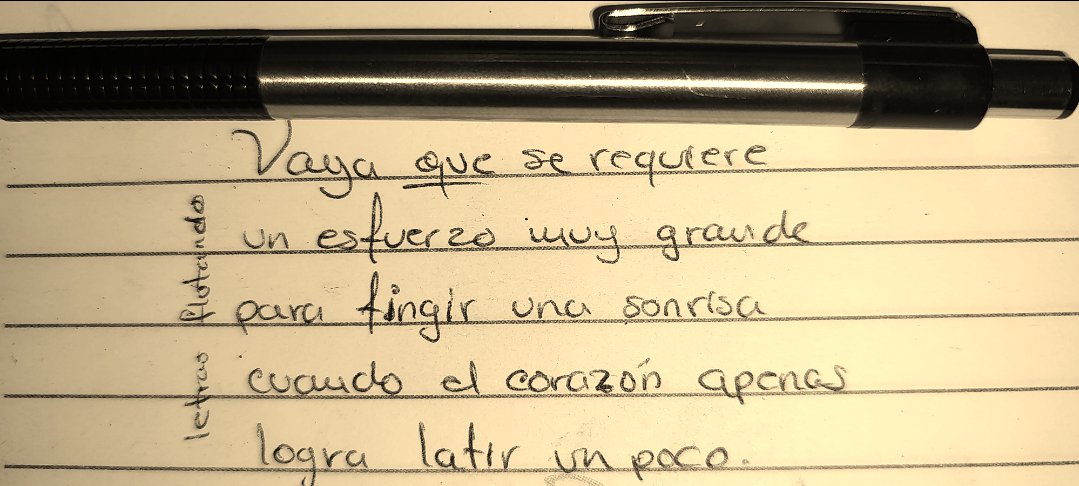 Vaya que se requiere
un esfuerzo muy grande
para fingir una sonrisa
cuando el corazón apenas
logra latir un poco.
letras flotando